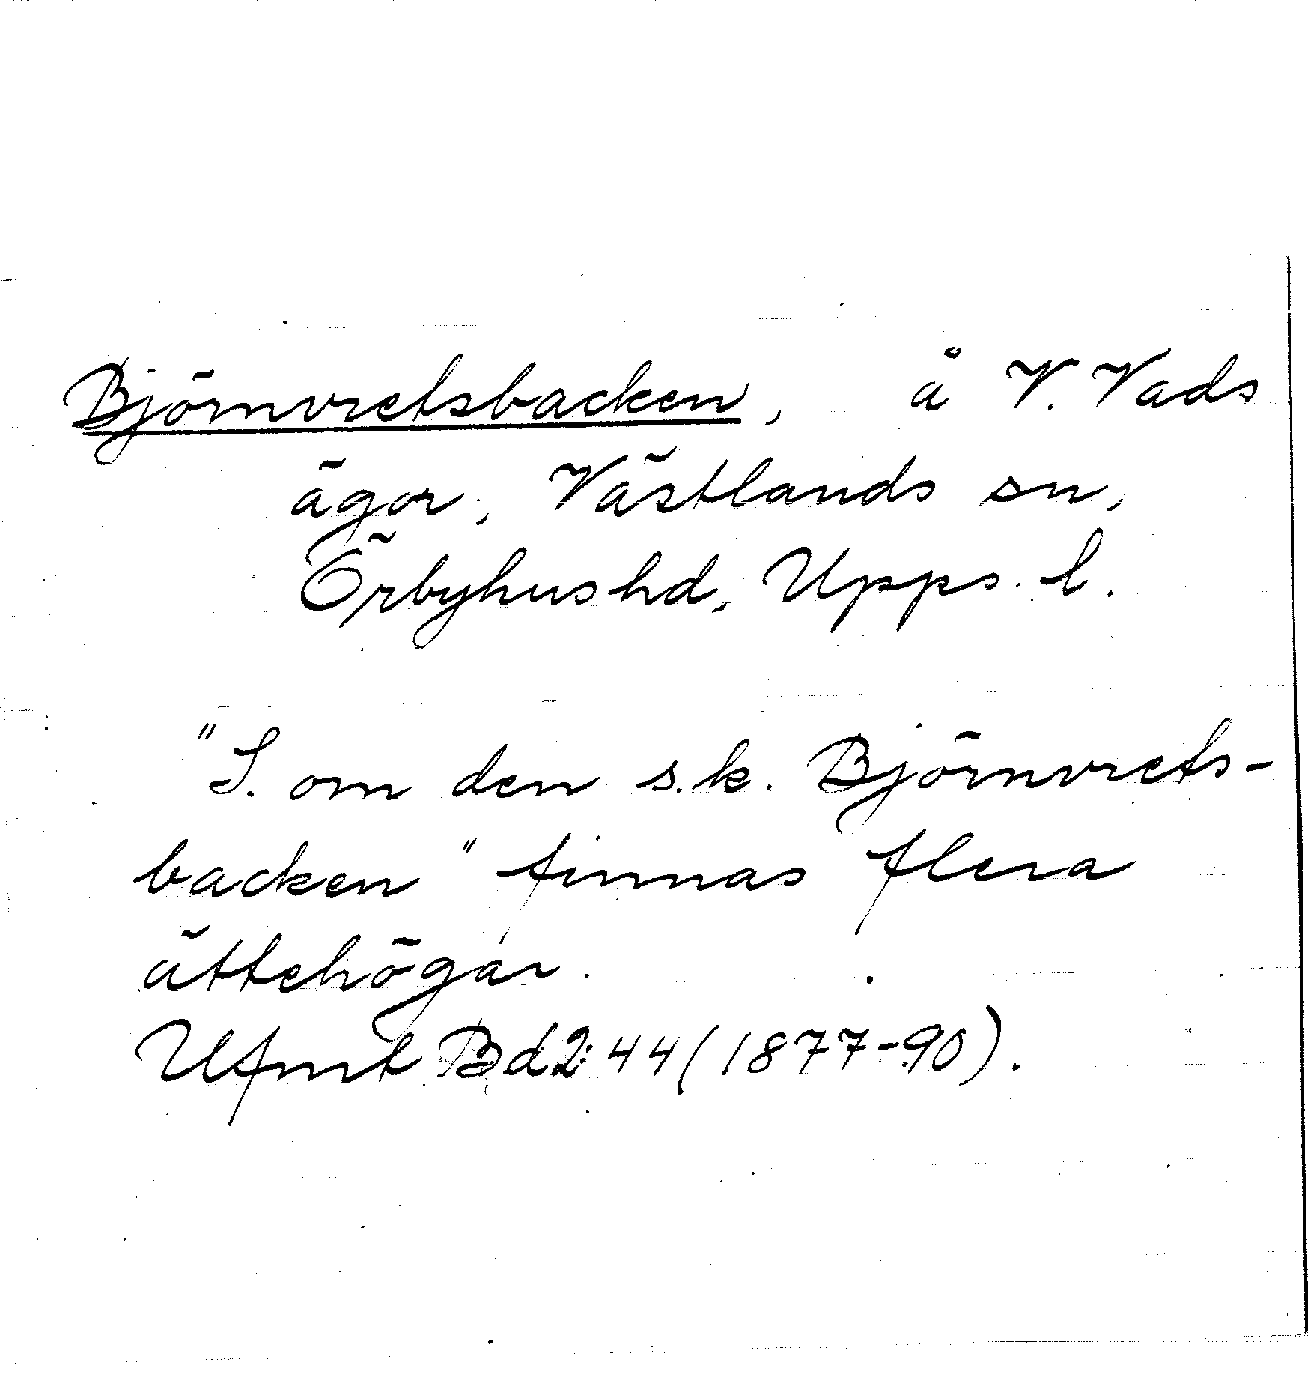 Björnvretsbacken, å V. Vads
ägor, Västlands sn,
Örbyhus hd, Upps. l.
"S. om den s.k. Björnvrets-
backen" finnas flera
ättehögar.
Ufmt Bd 2: 44 (1877-90).